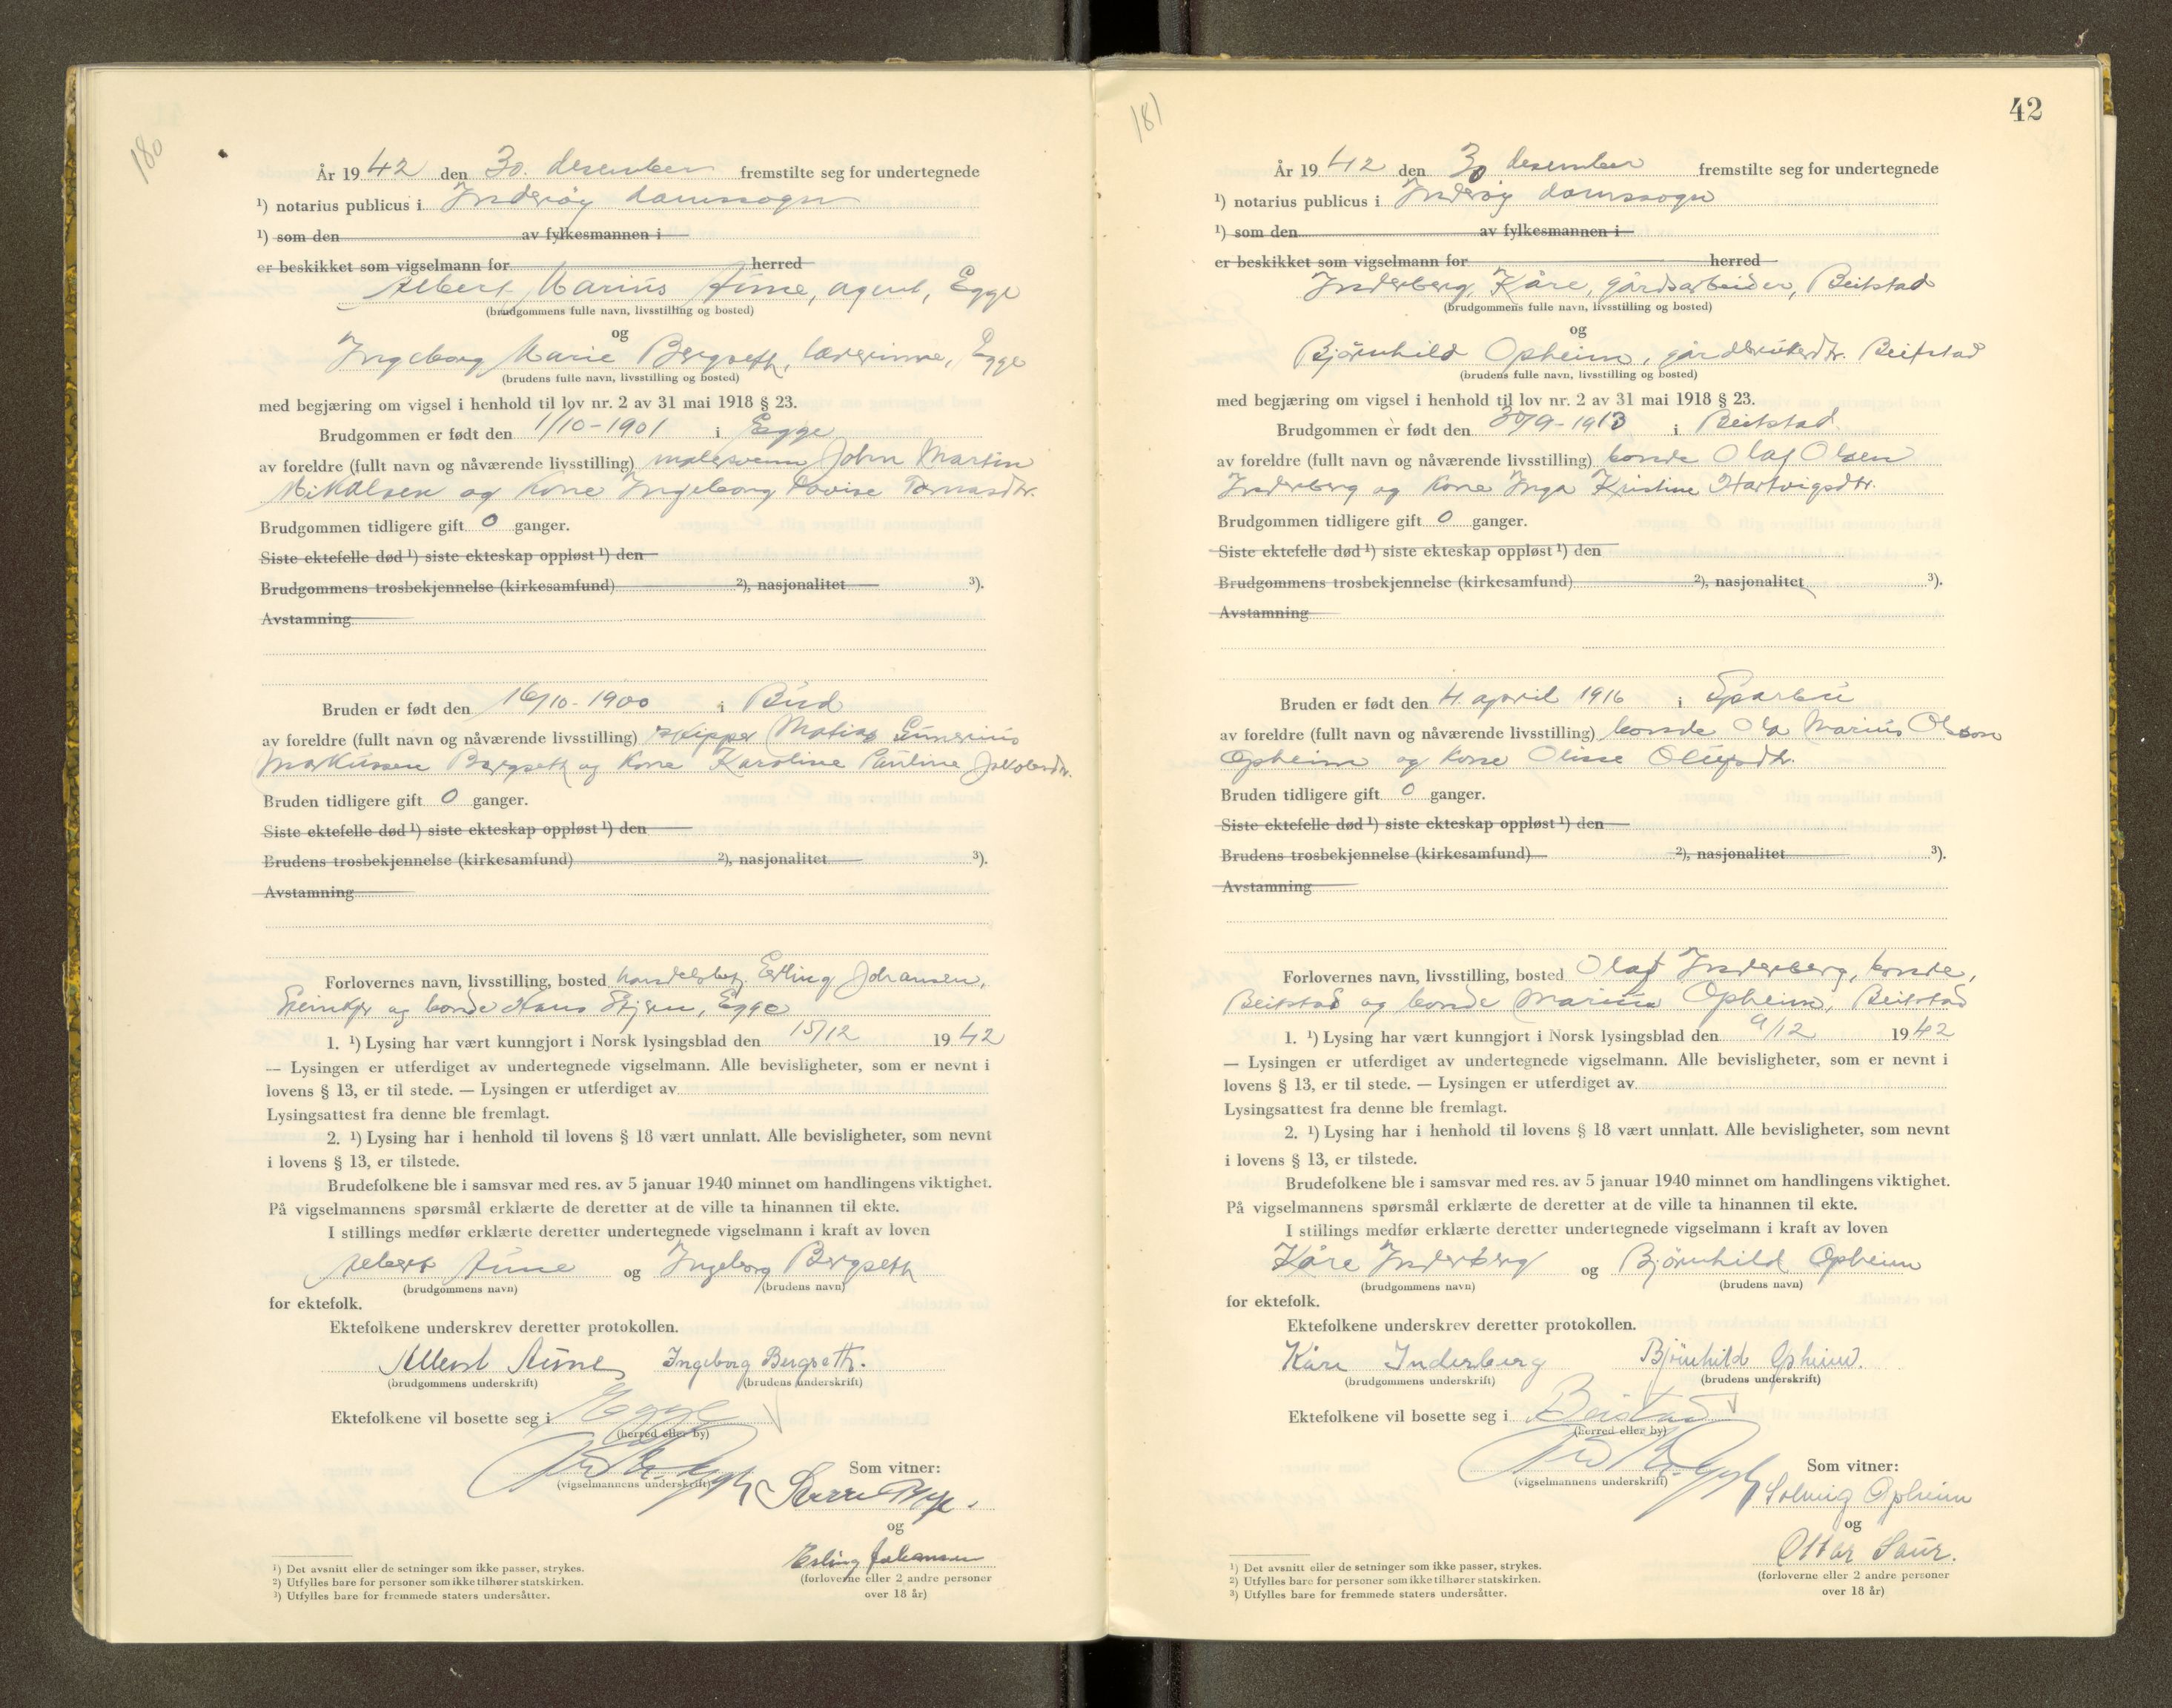 180
År 1942 den 30. desember fremstilte seg for undertegnede
¹) notarius publicus i Inderøy domssogn
¹) som den av fylkesmannen i
er beskikket som vigselmann for herred
Albert Marius Aune, agent, Egge
(brudgommens fulle navn, livsstilling og bosted)
og
Ingeborg Marie Bergseth, lærerinne, Egge
(brudens fulle navn, livsstilling og bosted)
med begjæring om vigsel i henhold til lov nr. 2 av 31 mai 1918 § 23.
Brudgommen er født den 1/10-1901 i Egge
av foreldre (fullt navn og nåværende livsstilling) malersvenn John Martin
Nikolsen og kone Ingeborg Lovise Tomasdtr.
Brudgommen tidligere gift 0 ganger.
Siste ektefelle død ¹) siste ekteskap oppløst ¹) den
Brudgommens trosbekjennelse (kirkesamfund) ²), nasjonalitet ³).
Avstamning
Bruden er født den 16/10-1900 i Bud
av foreldre (fullt navn og nåværende livsstilling) skipper Matias
Markussen Bergseth og kone Karoline Pauline Jakobsdtr.
Bruden tidligere gift 0 ganger.
Siste ektefelle død ¹) siste ekteskap oppløst ¹) den
Brudens trosbekjennelse (kirkesamfund) ²), nasjonalitet ³).
Avstamning
Forlovernes navn, livsstilling, bosted handelsbetj. Erling Johansen,
Steinkjer og bonde Hans Stjern, Egge
1. ¹) Lysing har vært kunngjort i Norsk lysingsblad den 15/12 1942
— Lysingen er utferdiget av undertegnede vigselmann. Alle bevisligheter, som er nevnt i
lovens § 13, er til stede. — Lysingen er utferdiget av
Lysingsattest fra denne ble fremlagt.
2. ¹) Lysing har i henhold til lovens § 18 vært unnlatt. Alle bevisligheter, som nevnt
i lovens § 13, er tilstede.
Brudefolkene ble i samsvar med res. av 5 januar 1940 minnet om handlingens viktighet.
På vigselmannens spørsmål erklærte de deretter at de ville ta hinannen til ekte.
I stillings medfør erklærte deretter undertegnede vigselmann i kraft av loven
Albert Aune og Ingeborg Bergseth
(brudgommens navn) (brudens navn)
for ektefolk.
Ektefolkene underskrev deretter protokollen.
Albert Aune Ingeborg Bergseth.
(brudgommens underskrift) (brudens underskrift)
Ektefolkene vil bosette seg i Egge
(herred eller by)
Som vitner:
(vigselmannens underskrift)
og
Erling Johansen
(forloverne eller 2 andre personer
over 18 år)
¹) Det avsnitt eller de setninger som ikke passer, strykes.
²) Utfylles bare for personer som ikke tilhører statskirken.
³) Utfylles bare for fremmede staters undersåtter.
181
42
År 1942 den 30 desember fremstilte seg for undertegnede
¹) notarius publicus i Inderøy domssogn
¹) som den av fylkesmannen i
er beskikket som vigselmann for herred
Inderberg, Kåre, gårdsarbeider, Beitstad
(brudgommens fulle navn, livsstilling og bosted)
og
Bjørnhild Opheim, gårdbrukerdtr. Beitstad
(brudens fulle navn, livsstilling og bosted)
med begjæring om vigsel i henhold til lov nr. 2 av 31 mai 1918 § 23.
Brudgommen er født den 30/9-1913 i Beitstad
av foreldre (fullt navn og nåværende livsstilling) bonde Olaf Olsen
Inderberg og kone Inga Kristine Hartvigsdtr.
Brudgommen tidligere gift 0 ganger.
Siste ektefelle død ¹) siste ekteskap oppløst ¹) den
Brudgommens trosbekjennelse (kirkesamfund) ²), nasjonalitet ³).
Avstamning
Bruden er født den 4. april 1916 i Sparbu
av foreldre (fullt navn og nåværende livsstilling) bonde Ola Marius Olsson
Opheim og kone Oline Olufsdtr.
Bruden tidligere gift 0 ganger.
Siste ektefelle død ¹) siste ekteskap oppløst ¹) den
Brudens trosbekjennelse (kirkesamfund) ²), nasjonalitet ³).
Avstamning
Forlovernes navn, livsstilling, bosted Olaf Inderberg, bonde,
Beitstad og bonde Marius Opheim, Beitstad
1. ¹) Lysing har vært kunngjort i Norsk lysingsblad den 9/12 1942
— Lysingen er utferdiget av undertegnede vigselmann. Alle bevisligheter, som er nevnt i
lovens § 13, er til stede. — Lysingen er utferdiget av
Lysingsattest fra denne ble fremlagt.
2. ¹) Lysing har i henhold til lovens § 18 vært unnlatt. Alle bevisligheter, som nevnt
i lovens § 13, er tilstede.
Brudefolkene ble i samsvar med res. av 5 januar 1940 minnet om handlingens viktighet.
På vigselmannens spørsmål erklærte de deretter at de ville ta hinannen til ekte.
I stillings medfør erklærte deretter undertegnede vigselmann i kraft av loven
Kåre Inderberg og Bjørnhild Opheim
(brudgommens navn) (brudens navn)
for ektefolk.
Ektefolkene underskrev deretter protokollen.
Kåre Inderberg Bjørnhild Opheim.
(brudgommens underskrift) (brudens underskrift)
Ektefolkene vil bosette seg i Beitstad
(herred eller by)
Som vitner:
(vigselmannens underskrift)
Solveig Opheim
og
Ottar Saur.
(forloverne eller 2 andre personer
over 18 år)
¹) Det avsnitt eller de setninger som ikke passer, strykes.
²) Utfylles bare for personer som ikke tilhører statskirken.
³) Utfylles bare for fremmede staters undersåtter.